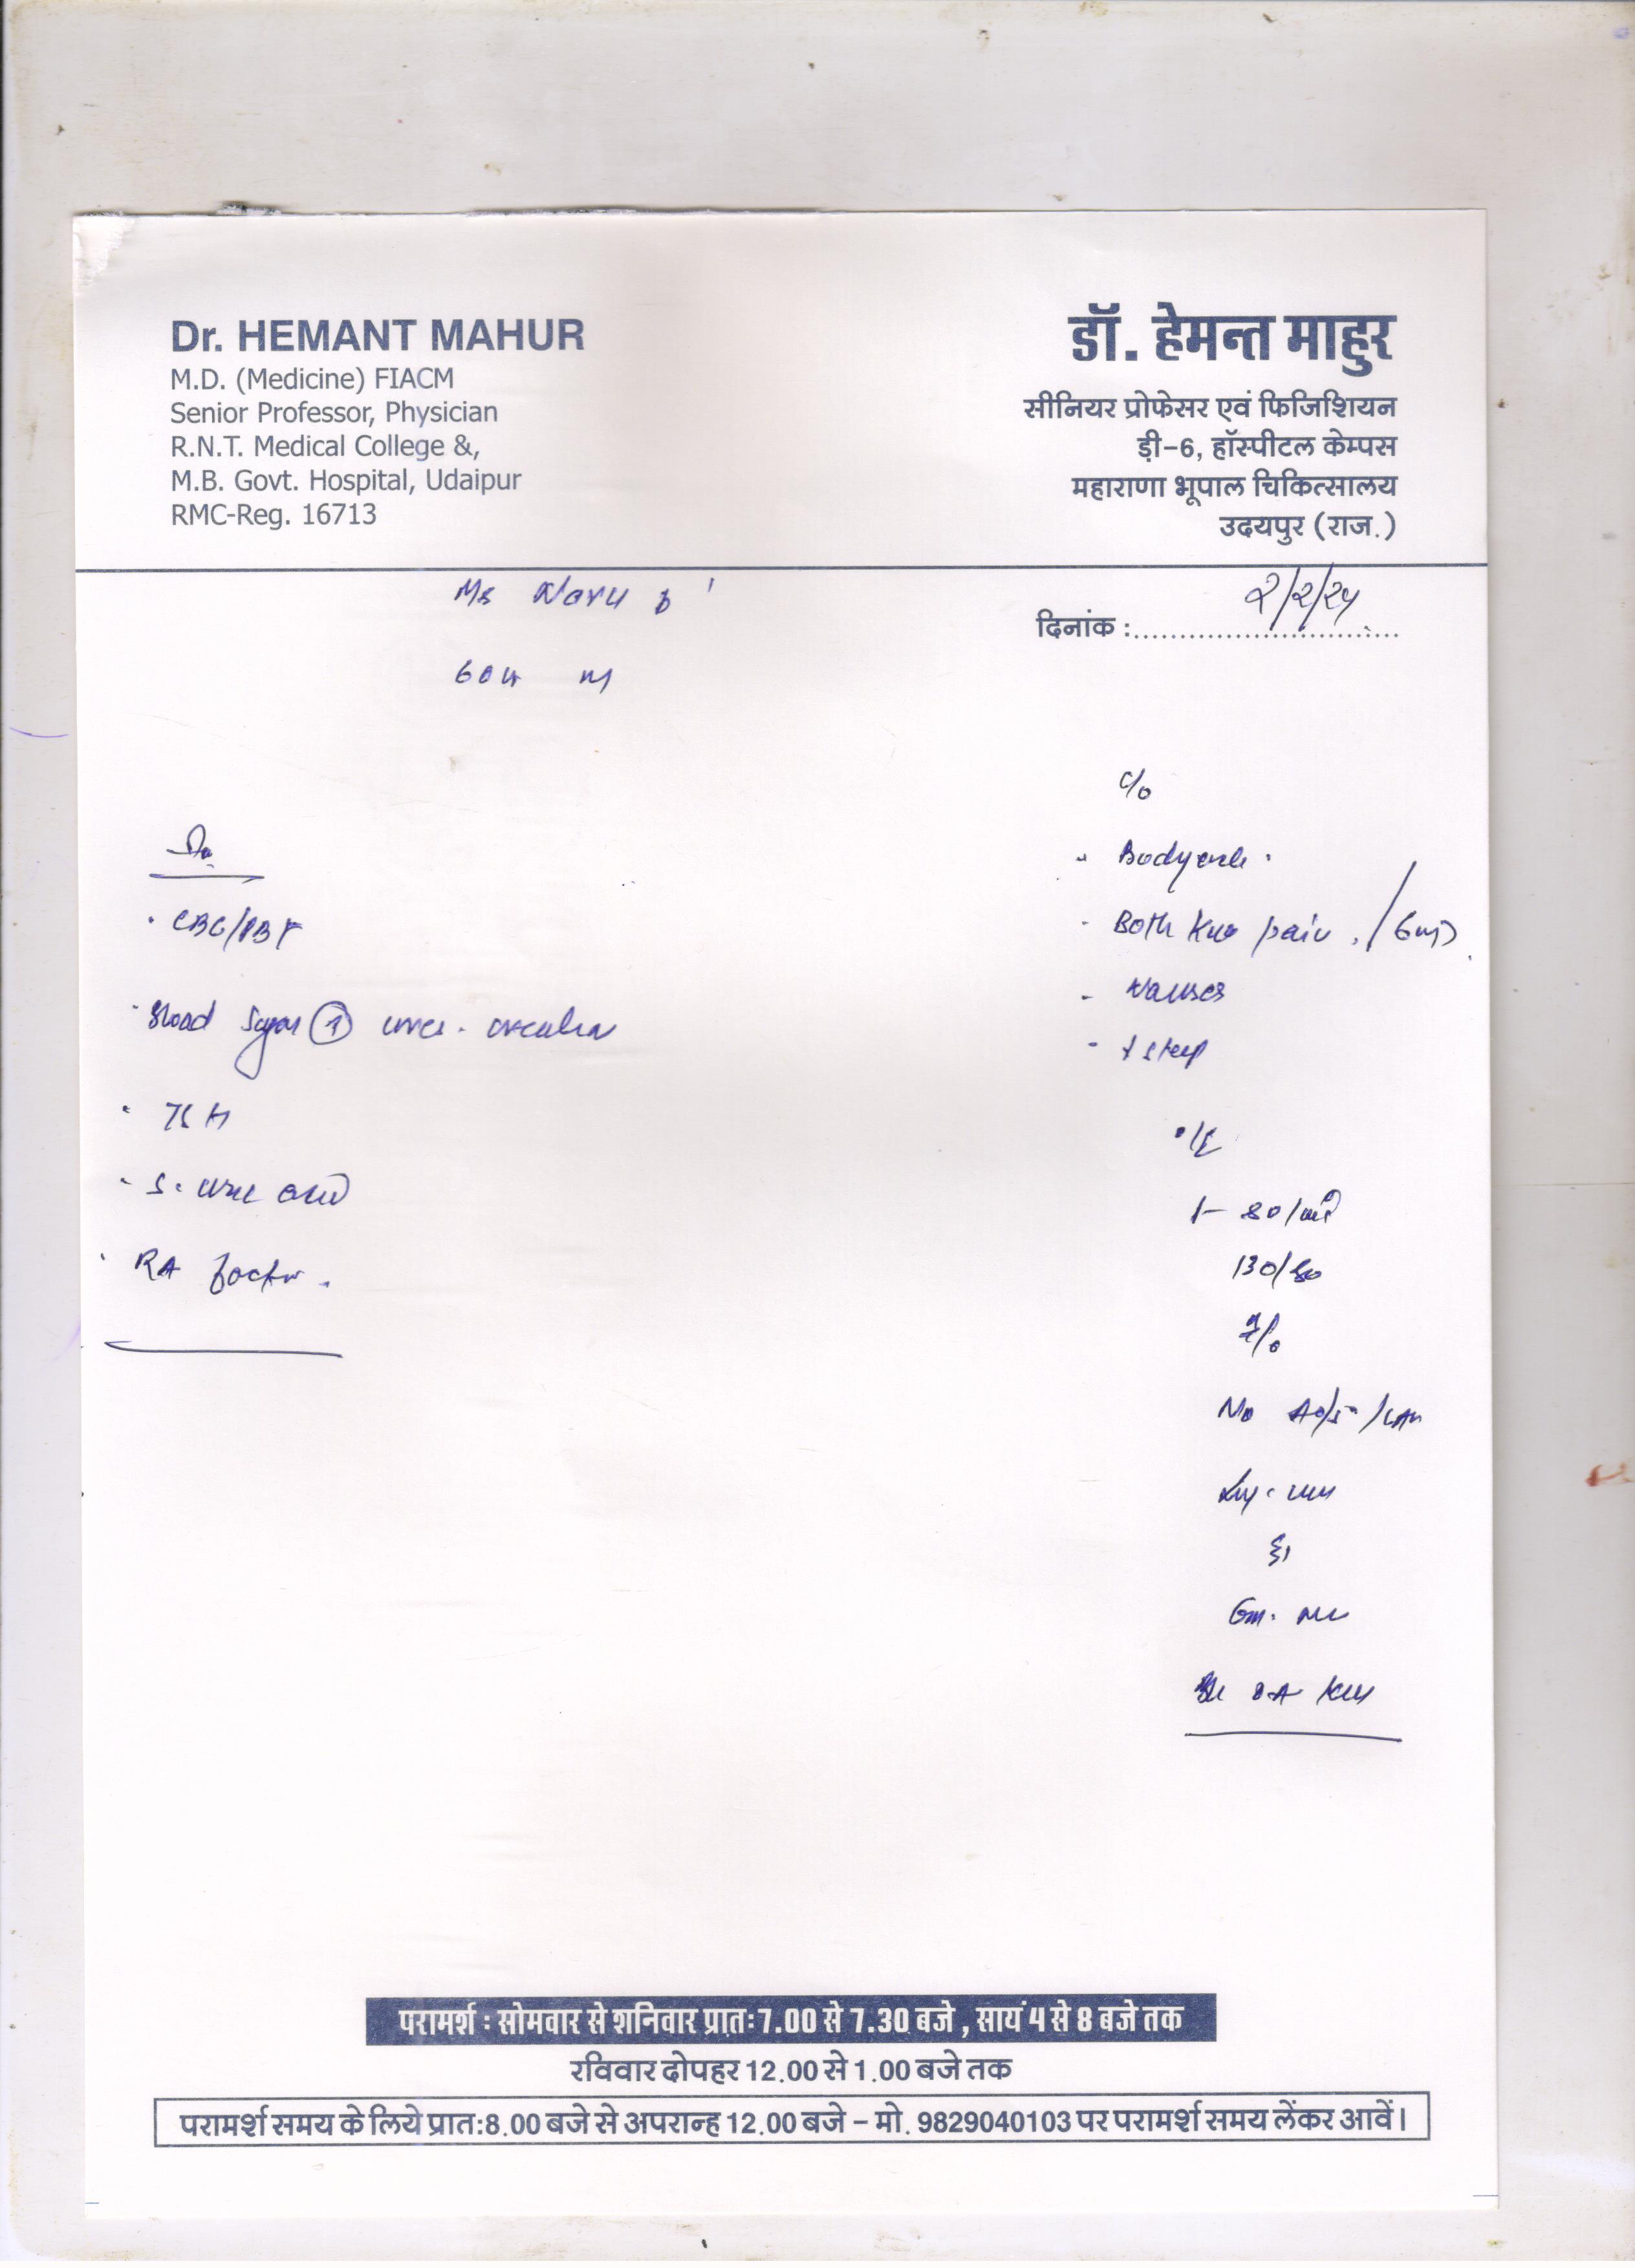 Dr. HEMANT MAHUR
M.D. (Medicine) FIACM
Senior Professor, Physician
R.N.T. Medical College &,
M.B. Govt. Hospital, Udaipur
RMC-Reg. 16713
डॉ. हेमन्त माहुर
सीनियर प्रोफेसर एवं फिजिशियन
ड़ी-6, हॉस्पीटल केम्पस
महाराणा भूपाल चिकित्सालय
उदयपुर (राज.)
दिनांक :
60 M
CBC/PBF
Blood Sugar
TSH
S. uric acid
RA factor.
c/o
Both Knee pain
Nausea
sleep
O/E
80/
130/80
No
परामर्श : सोमवार से शनिवार प्रातः 7.00 से 7.30 बजे, सायं 4 से 8 बजे तक
रविवार दोपहर 12.00 से 1.00 बजे तक
परामर्श समय के लिये प्रातः 8.00 बजे से अपरान्ह 12.00 बजे – मो. 9829040103 पर परामर्श समय लेंकर आवें।